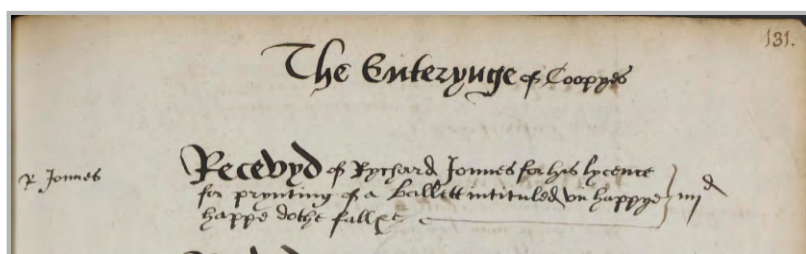 131.
The Enterynge of Cooppes
R Jonnes
Recevyd of Rychard Jonnes for his lycense
for pryntinge of a ballett intituled vn happye
happe dothe falle
iiijd